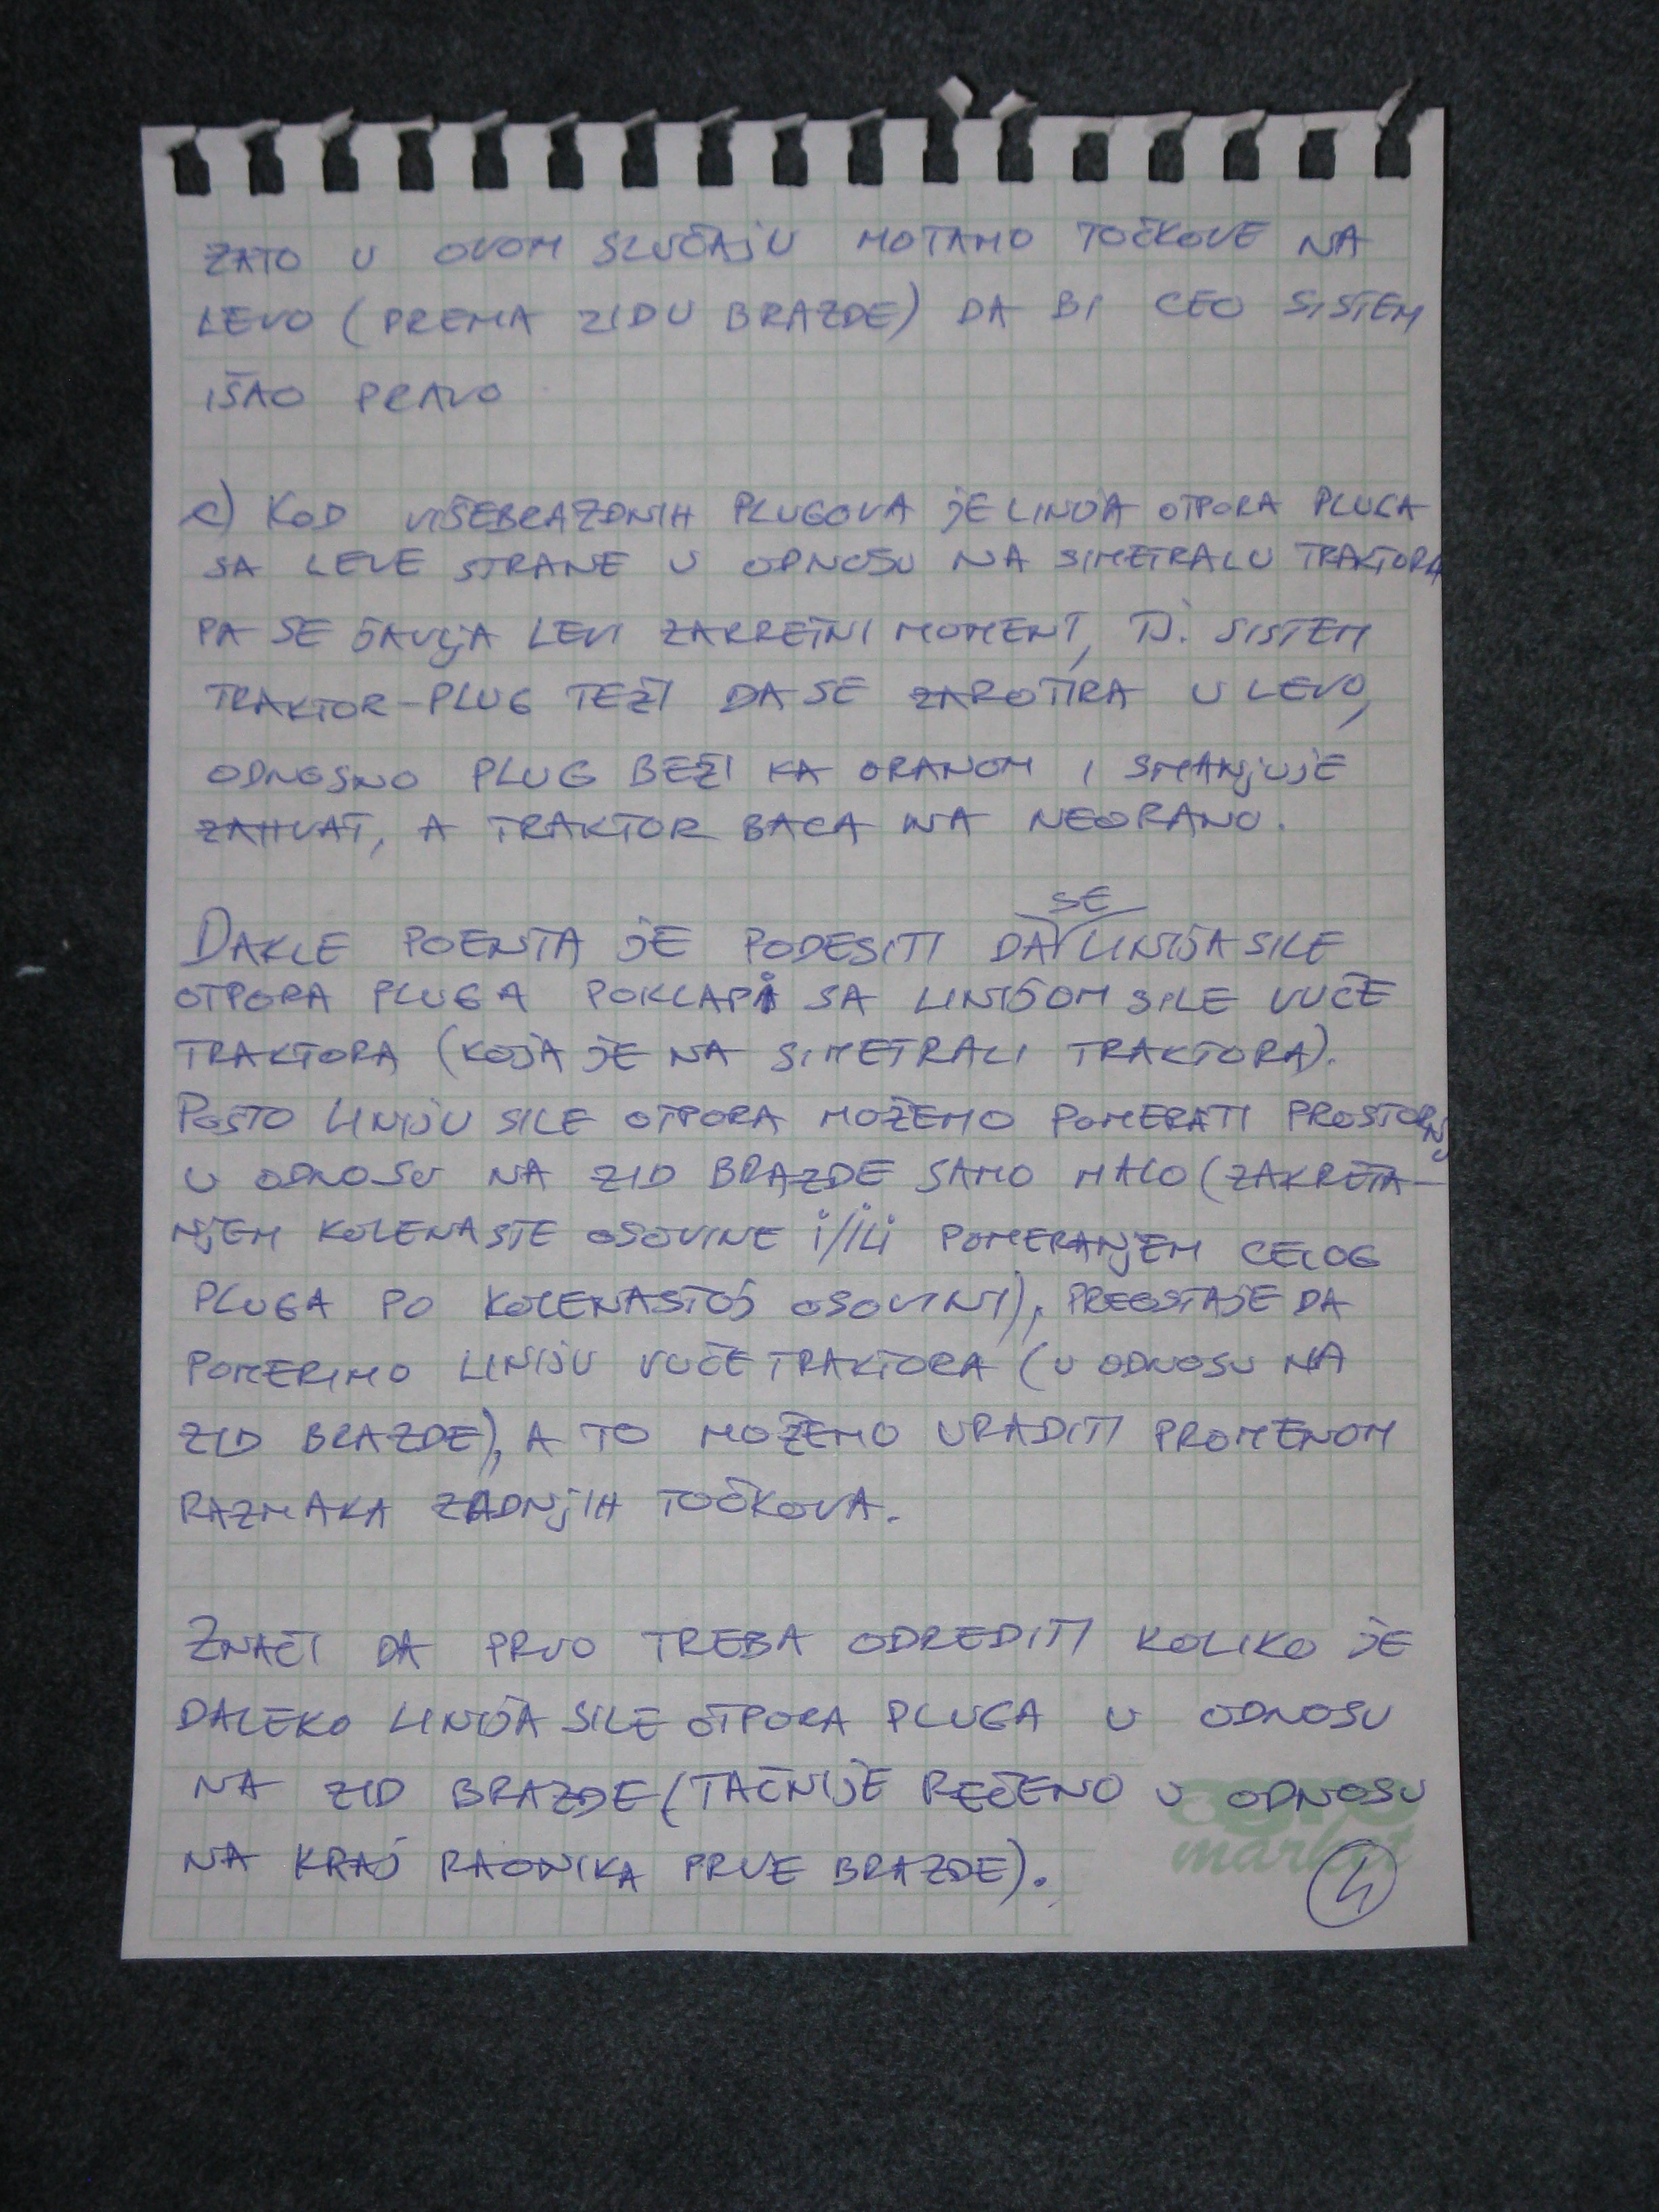 ZATO U OVOM SLUČAJU MOTAMO TOČKOVE NA
LEVO (PREMA ZIDU BRAZDE) DA BI CEO SISTEM
IŠAO PRAVO
c) KOD VIŠEBRAZDNIH PLUGOVA JE LINIJA OTPORA PLUGA
SA LEVE STRANE U ODNOSU NA SIMETRALU TRAKTORA
PA SE JAVLJA LEVI ZAKRETNI MOMENT, TJ. SISTEM
TRAKTOR-PLUG TEŽI DA SE ZAROTIRA U LEVO,
ODNOSNO PLUG BEŽI KA ORANOM I SMANJUJE
ZAHVAT, A TRAKTOR BACA NA NEORANO.
DAKLE POENTA JE PODESITI DA SE LINIJA SILE
OTPORA PLUGA POKLAPA SA LINIJOM SILE VUČE
TRAKTORA (KOJA JE NA SIMETRALI TRAKTORA).
POŠTO LINIJU SILE OTPORA MOŽEMO POMERATI PROSTORNO
U ODNOSU NA ZID BRAZDE SAMO MALO (ZAKRETA-
NJEM KOLENASTE OSOVINE i/ILI POMERANJEM CELOG
PLUGA PO KOLENASTOJ OSOVINI), PREOSTAJE DA
POMERIMO LINIJU VUČE TRAKTORA (U ODNOSU NA
ZID BRAZDE), A TO MOŽEMO URADITI PROMENOM
RAZMAKA ZADNJIH TOČKOVA.
ZNAČI DA PRVO TREBA ODREDITI KOLIKO JE
DALEKO LINIJA SILE OTPORA PLUGA U ODNOSU
NA ZID BRAZDE (TAČNIJE REČENO U ODNOSU
NA KRAJ RAONIKA PRVE BRAZDE).
agro
market
4